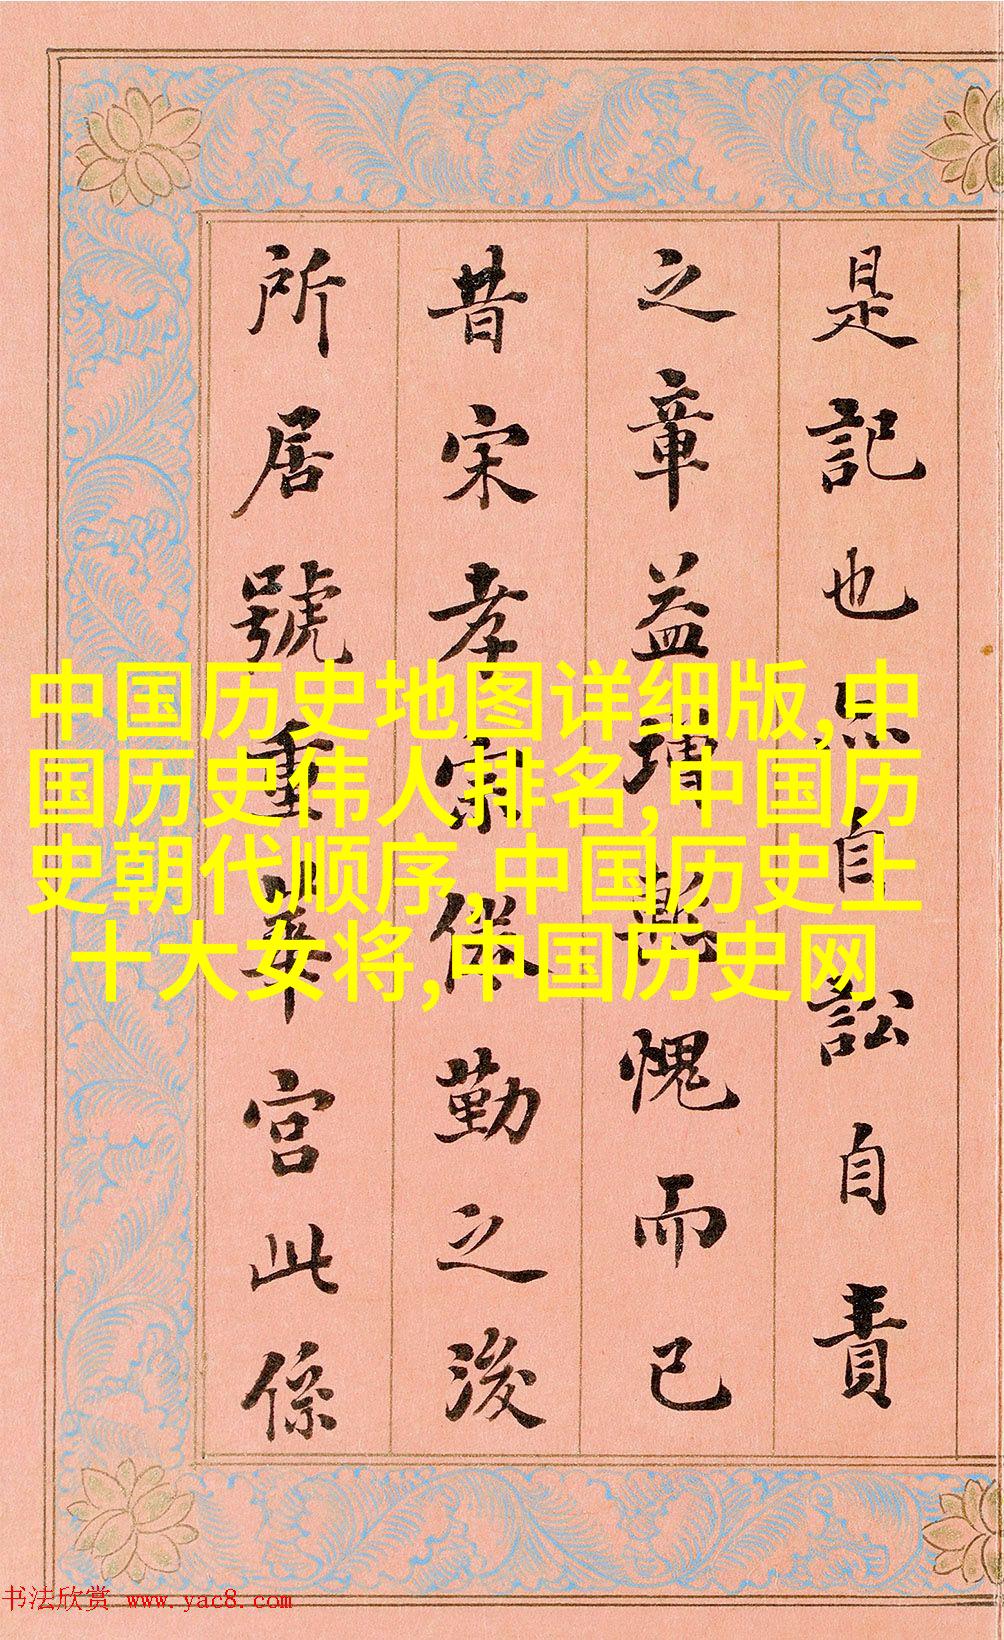 是記也亦自訟自責
之章益增慙愧而已
昔宋孝宗倦勤之後
所居號重華宮此係
中国历史地图详细版,中
国历史伟人排名,中国历
史朝代顺序,中国历史上
十大女将,中国历史网
书法欣赏 www.yac8.com